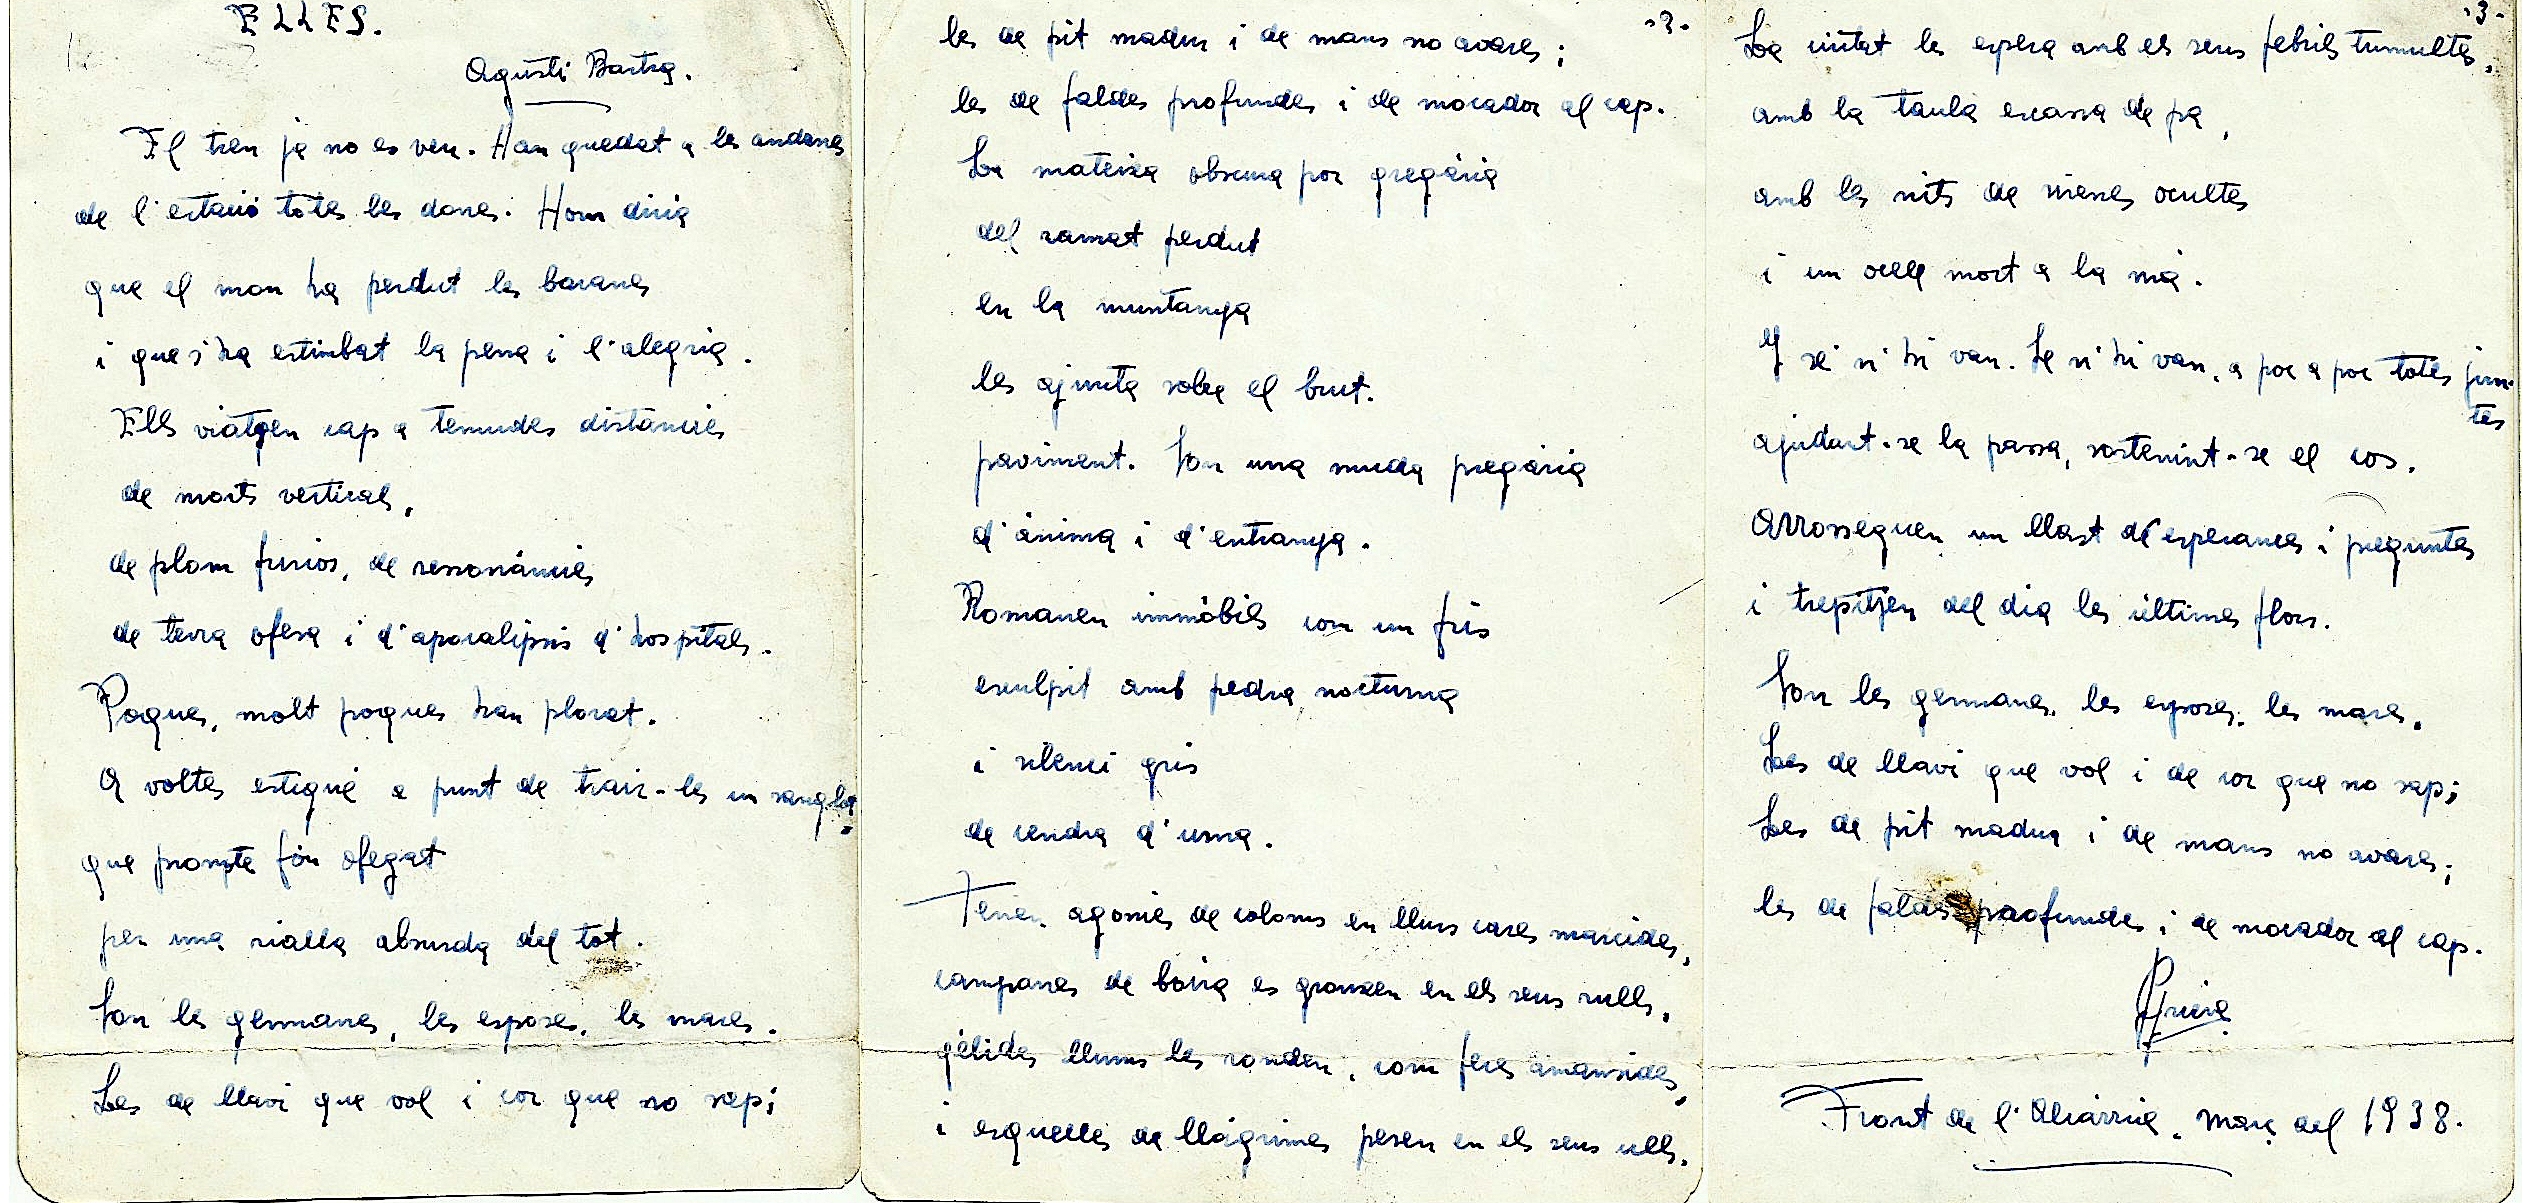 ELLES.
Agustí Bartra.
El tren ja no es veu. Han quedat a les andanes
de l'estació totes les dones. Hom diria
que el mon ha perdut les baranes
i que s'ha estimbat la pena i l'alegria.
Ells viatgen cap a temudes distàncies
de morts verticals,
de plom furios, de ressonàncies
de terra ofesa i d'apocalipsis d'hospitals.
Poques, molt poques han plorat.
A voltes estigué a punt de trair-les un sanglot
que prompte fóu ofegat
per una rialla absurda del tot.
Son les germanes, les esposes, les mares.
Les de llavi que vol i cor que no sap;
-2-
les de pit madur i de mans no avares;
les de faldes profundes i de mocador al cap.
La mateixa obscura por gregària
del ramat perdut
en la muntanya
les ajunta sobre el brut.
paviment. Son una muda pregària
d'ànima i d'entranya.
Romanen immòbils com un fris
esculpit amb pedra nocturna
i silenci gris
de cendra d'urna.
Tenen agonies de coloms en llurs cares marcides,
campanes de boira es gronxen en els seus rulls,
gèlides llums les ronden, com feres amansides,
i esquelles de llàgrimes pesen en els seus ulls.
-3-
La ciutat les espera amb els seus febrils tumultes,
amb la taula escassa de pa,
amb les nits de sirenes ocultes
i un ocell mort a la mà.
Y se n'hi van. Se n'hi van, a poc a poc totes jun-
tes
ajudant-se la passa, sostenint-se el cos.
Arrosseguen un llast d'esperances i preguntes
i trepitjen del dia les últimes flors.
Son les germanes, les esposes, les mares,
Les de llavi que vol i de cor que no sap;
Les de pit madur i de mans no avares;
les de faldes profundes i de mocador al cap.
Front de l'Alcàrria. Març del 1938.